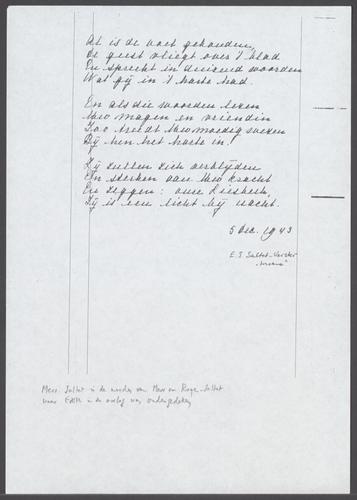 Al is de voet gebonden,
De geest vliegt over 't blad
En spreekt in duizend woorden
Wat gij in 't harte had.
En als die woorden lezen
Uw magen en vriendin
Zoo treedt Uw moedig wezen
Bij hen het harte in!
Zij zullen zich verblijden
En sterken aan Uw kracht
En zeggen: onze
Zij is een licht bij nacht.
5 Dec. 1943
E. J. Saltet-
Mevr. Saltet is de moeder van Mevr
waar Edith in de oorlog was ondergedoken